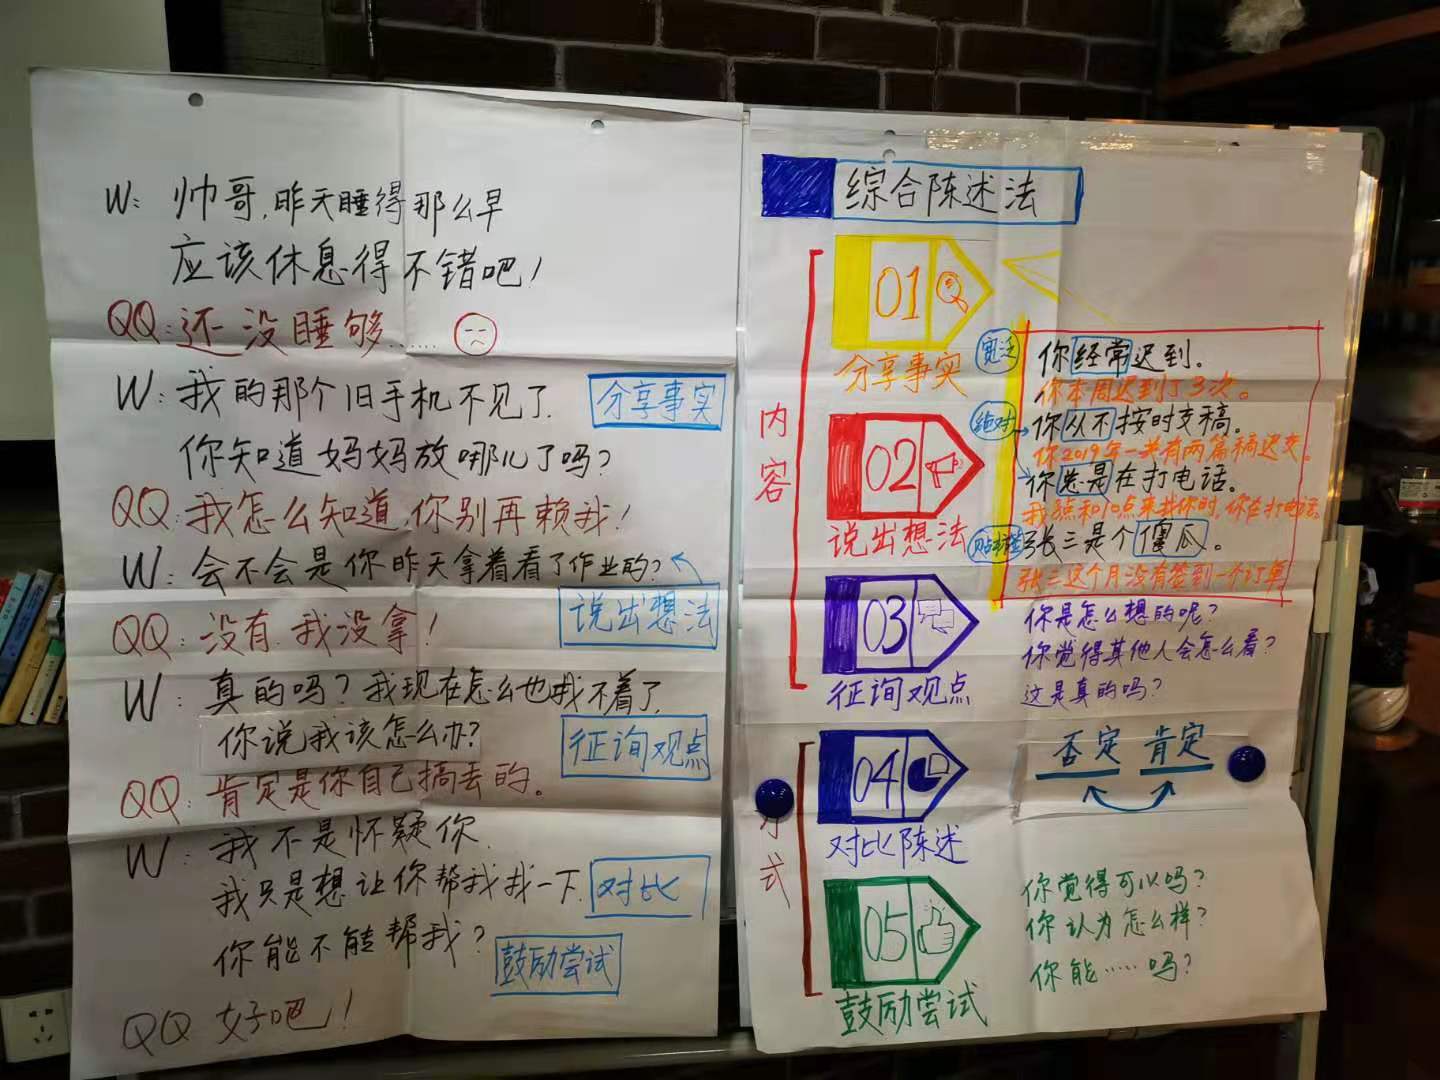 W: 帅哥,昨天睡得那么早
应该休息得不错吧!
QQ: 还没睡够……
W: 我的那个旧手机不见了.
分享事实
你知道妈妈放哪儿了吗?
QQ: 我怎么知道,你别再赖我!
W: 会不会是你昨天拿着看了作业的?
说出想法
QQ: 没有.我没拿!
W: 真的吗?我现在怎么也找不着了.
你说我该怎么办?
征询观点
QQ: 肯定是你自己搞丢的。
W: 我不是怀疑你.
我只是想让你帮我找一下.
对比
你能不能帮我?
鼓励尝试
QQ 好吧!
综合陈述法
内容
01
分享事实
宽泛
你经常迟到。
你本周迟到了3次。
绝对
你从不按时交稿。
你2019年一共有两篇稿迟交。
你总是在打电话。
02
说出想法
我3点和10点来找你时,你在打电话。
贴标签
张三是个傻瓜。
张三这个月没有签到一个订单
03
征询观点
你是怎么想的呢?
你觉得其他人会怎么看?
这是真的吗?
式
04
对比陈述
否定 肯定
05
鼓励尝试
你觉得可以吗?
你认为怎么样?
你能……吗?